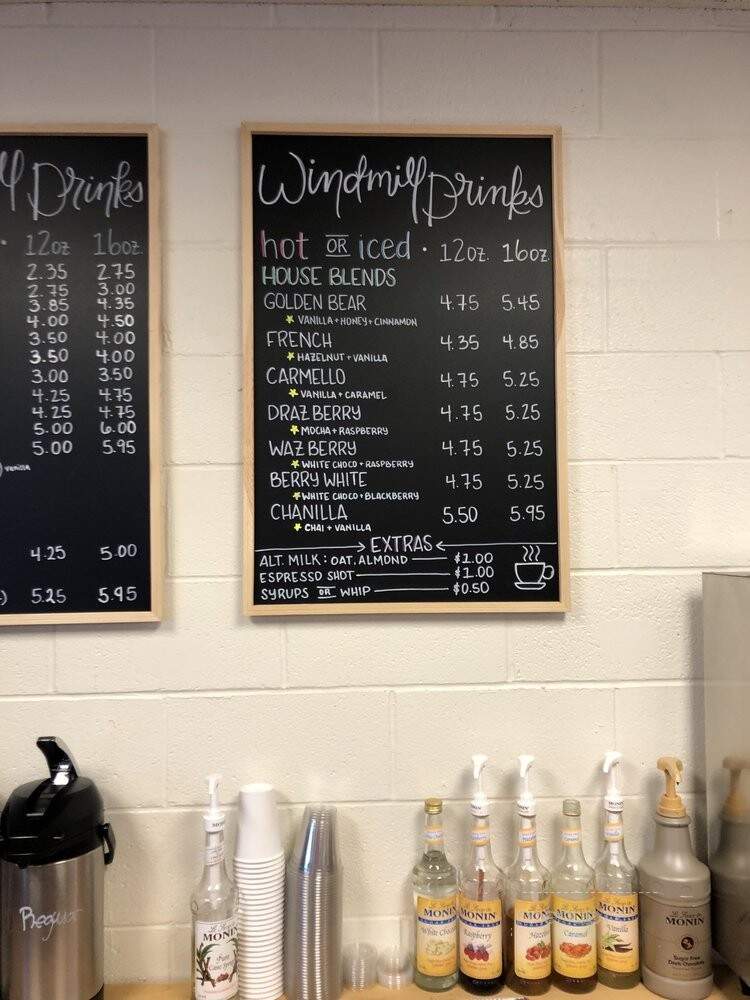 Drinks
12oz 16oz
2.35 2.75
2.75 3.00
3.85 4.35
4.00 4.50
3.50 4.00
3.50 4.00
3.00 3.50
4.25 4.75
4.25 4.75
5.00 6.00
5.00 5.95
vanilla
4.25 5.00
5.25 5.95
Windmill Drinks
hot OR iced • 12oz. 16oz.
HOUSE BLENDS
GOLDEN BEAR 4.75 5.45
VANILLA + HONEY + CINNAMON
FRENCH 4.35 4.85
HAZELNUT + VANILLA
CARMELLO 4.75 5.25
VANILLA + CARAMEL
DRAZ BERRY 4.75 5.25
MOCHA + RASPBERRY
WAZ BERRY 4.75 5.25
WHITE CHOCO + RASPBERRY
BERRY WHITE 4.75 5.25
WHITE CHOCO + BLACKBERRY
CHANILLA 5.50 5.95
CHAI + VANILLA
EXTRAS
ALT. MILK: OAT, ALMOND $1.00
ESPRESSO SHOT $1.00
SYRUPS OR WHIP $0.50
Regular
MONIN
Pure
MONIN
White
MONIN
Raspberry
MONIN
MONIN
Caramel
MONIN
Vanilla
MONIN
Sugar Free
Dark Chocolate